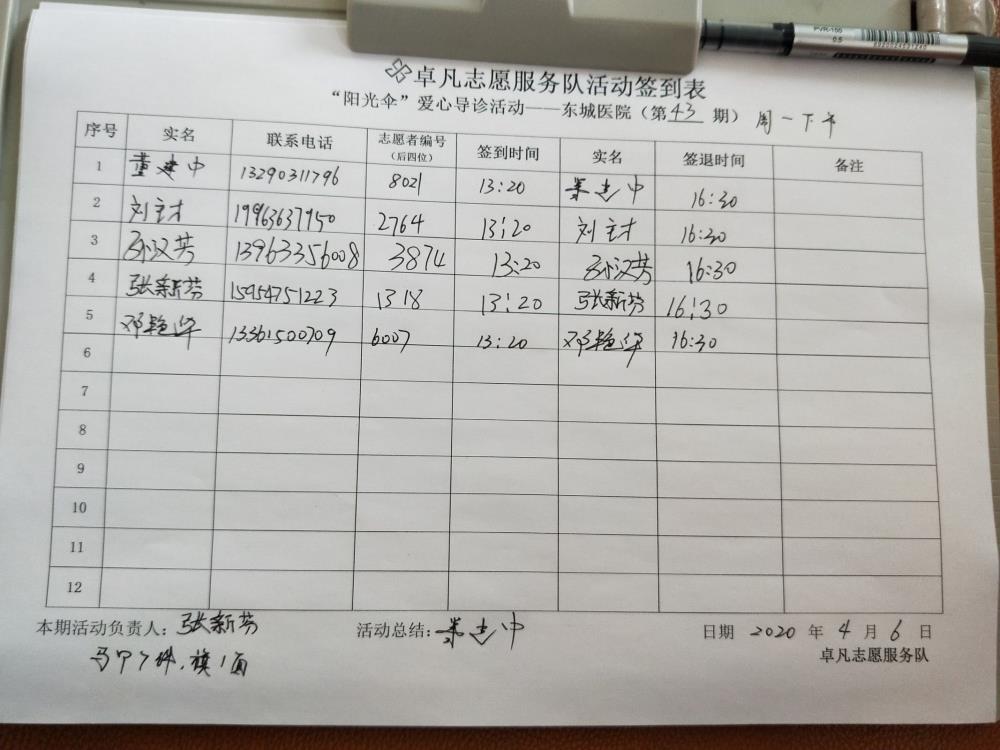 PVR-155
0.5
6920024531240
卓凡志愿服务队活动签到表
“阳光伞”爱心导诊活动——东城医院（第43期）周一下午
序号 实名 联系电话 志愿者编号（后四位） 签到时间 实名 签退时间 备注
1 董建中 13290311796 8021 13:20 董建中 16:30
2 刘主才 19963637950 2764 13:20 刘主才 16:30
3 孙汉芳 13963356008 3874 13:20 孙汉芳 16:30
4 张新芳 15954751223 1318 13:20 张新芳 16:30
5 邓艳华 13361500709 6007 13:20 邓艳华 16:30
6
7
8
9
10
11
12
本期活动负责人：张新芳 活动总结：董建中 日期 2020 年 4 月 6 日
马甲7件，旗1面 卓凡志愿服务队